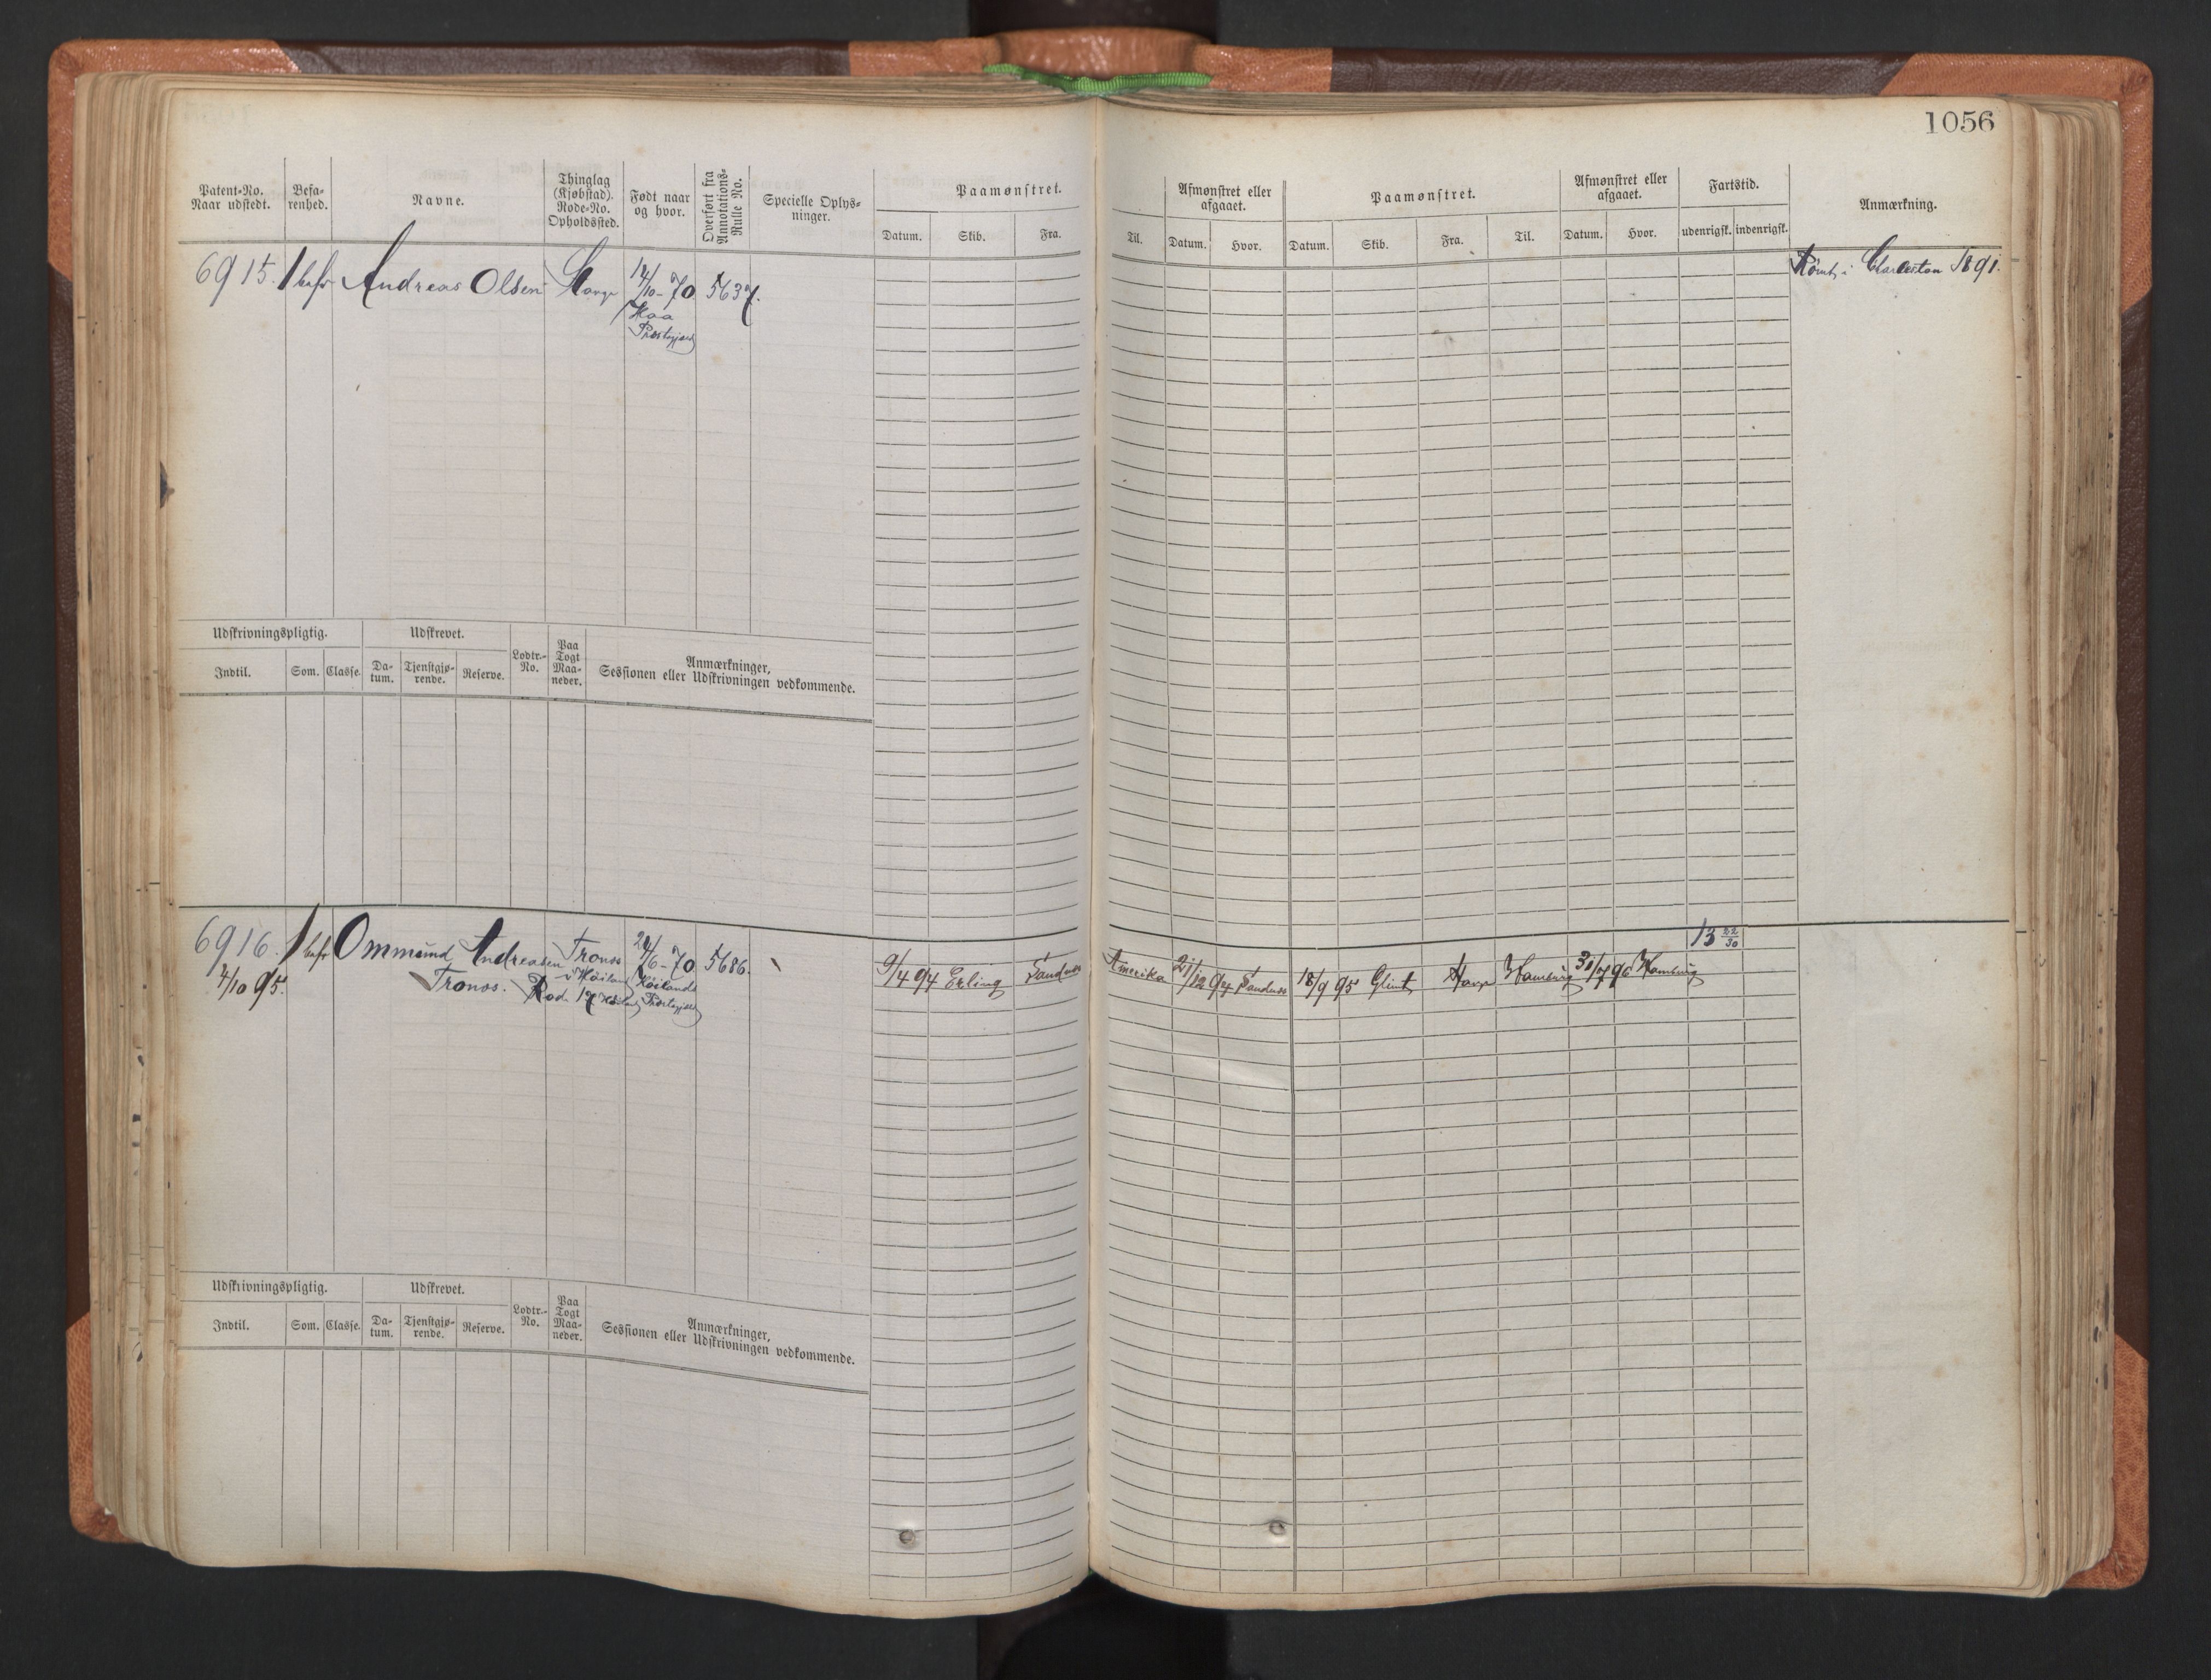 1056
Patent-No.
Naar udstedt.
Befa-
renhed.
Navne.
Thinglag
(Kjøbstad).
Rode-No.
Opholdssted.
Født naar
og hvor.
Overført fra
Annotations-
Rulle No.
Specielle Oplys-
ninger.
Paamønstret.
Datum. Skib. Fra.
Til.
Afmønstret eller
afgaaet.
Datum. Hvor.
Paamønstret.
Datum. Skib. Fra. Til.
Afmønstret eller
afgaaet.
Datum. Hvor.
Fartstid.
udenrigsk. indenrigsk.
Anmærkning.
6915. 1 bef Andreas Olsen 14/10-70 5637.
Haa
Præstegjeld
Rømt i Charleston 1891.
Udskrivningspligtig.
Indtil. Som. Classe.
Udskrevet.
Da-
tum.
Tjenstgjø-
rende.
Reserve.
Lodtr.-
No.
Paa
Togt
Maa-
neder.
Anmærkninger,
Sessionen eller Udskrivningen vedkommende.
6916. 1 bef Ommund Andreasen Tronos 24/6-70 5686.
4/10 95. Tronos. i Höiland Höilands
Rode 17 Præstegjeld
9/4 94 Erling Sandnes Amerika 21/12 94 Sandnes 18/9 95 Glint Hamburg 31/7 96 Hamburg
13 22/30
Udskrivningspligtig.
Indtil. Som. Classe.
Udskrevet.
Da-
tum.
Tjenstgjø-
rende.
Reserve.
Lodtr.-
No.
Paa
Togt
Maa-
neder.
Anmærkninger,
Sessionen eller Udskrivningen vedkommende.